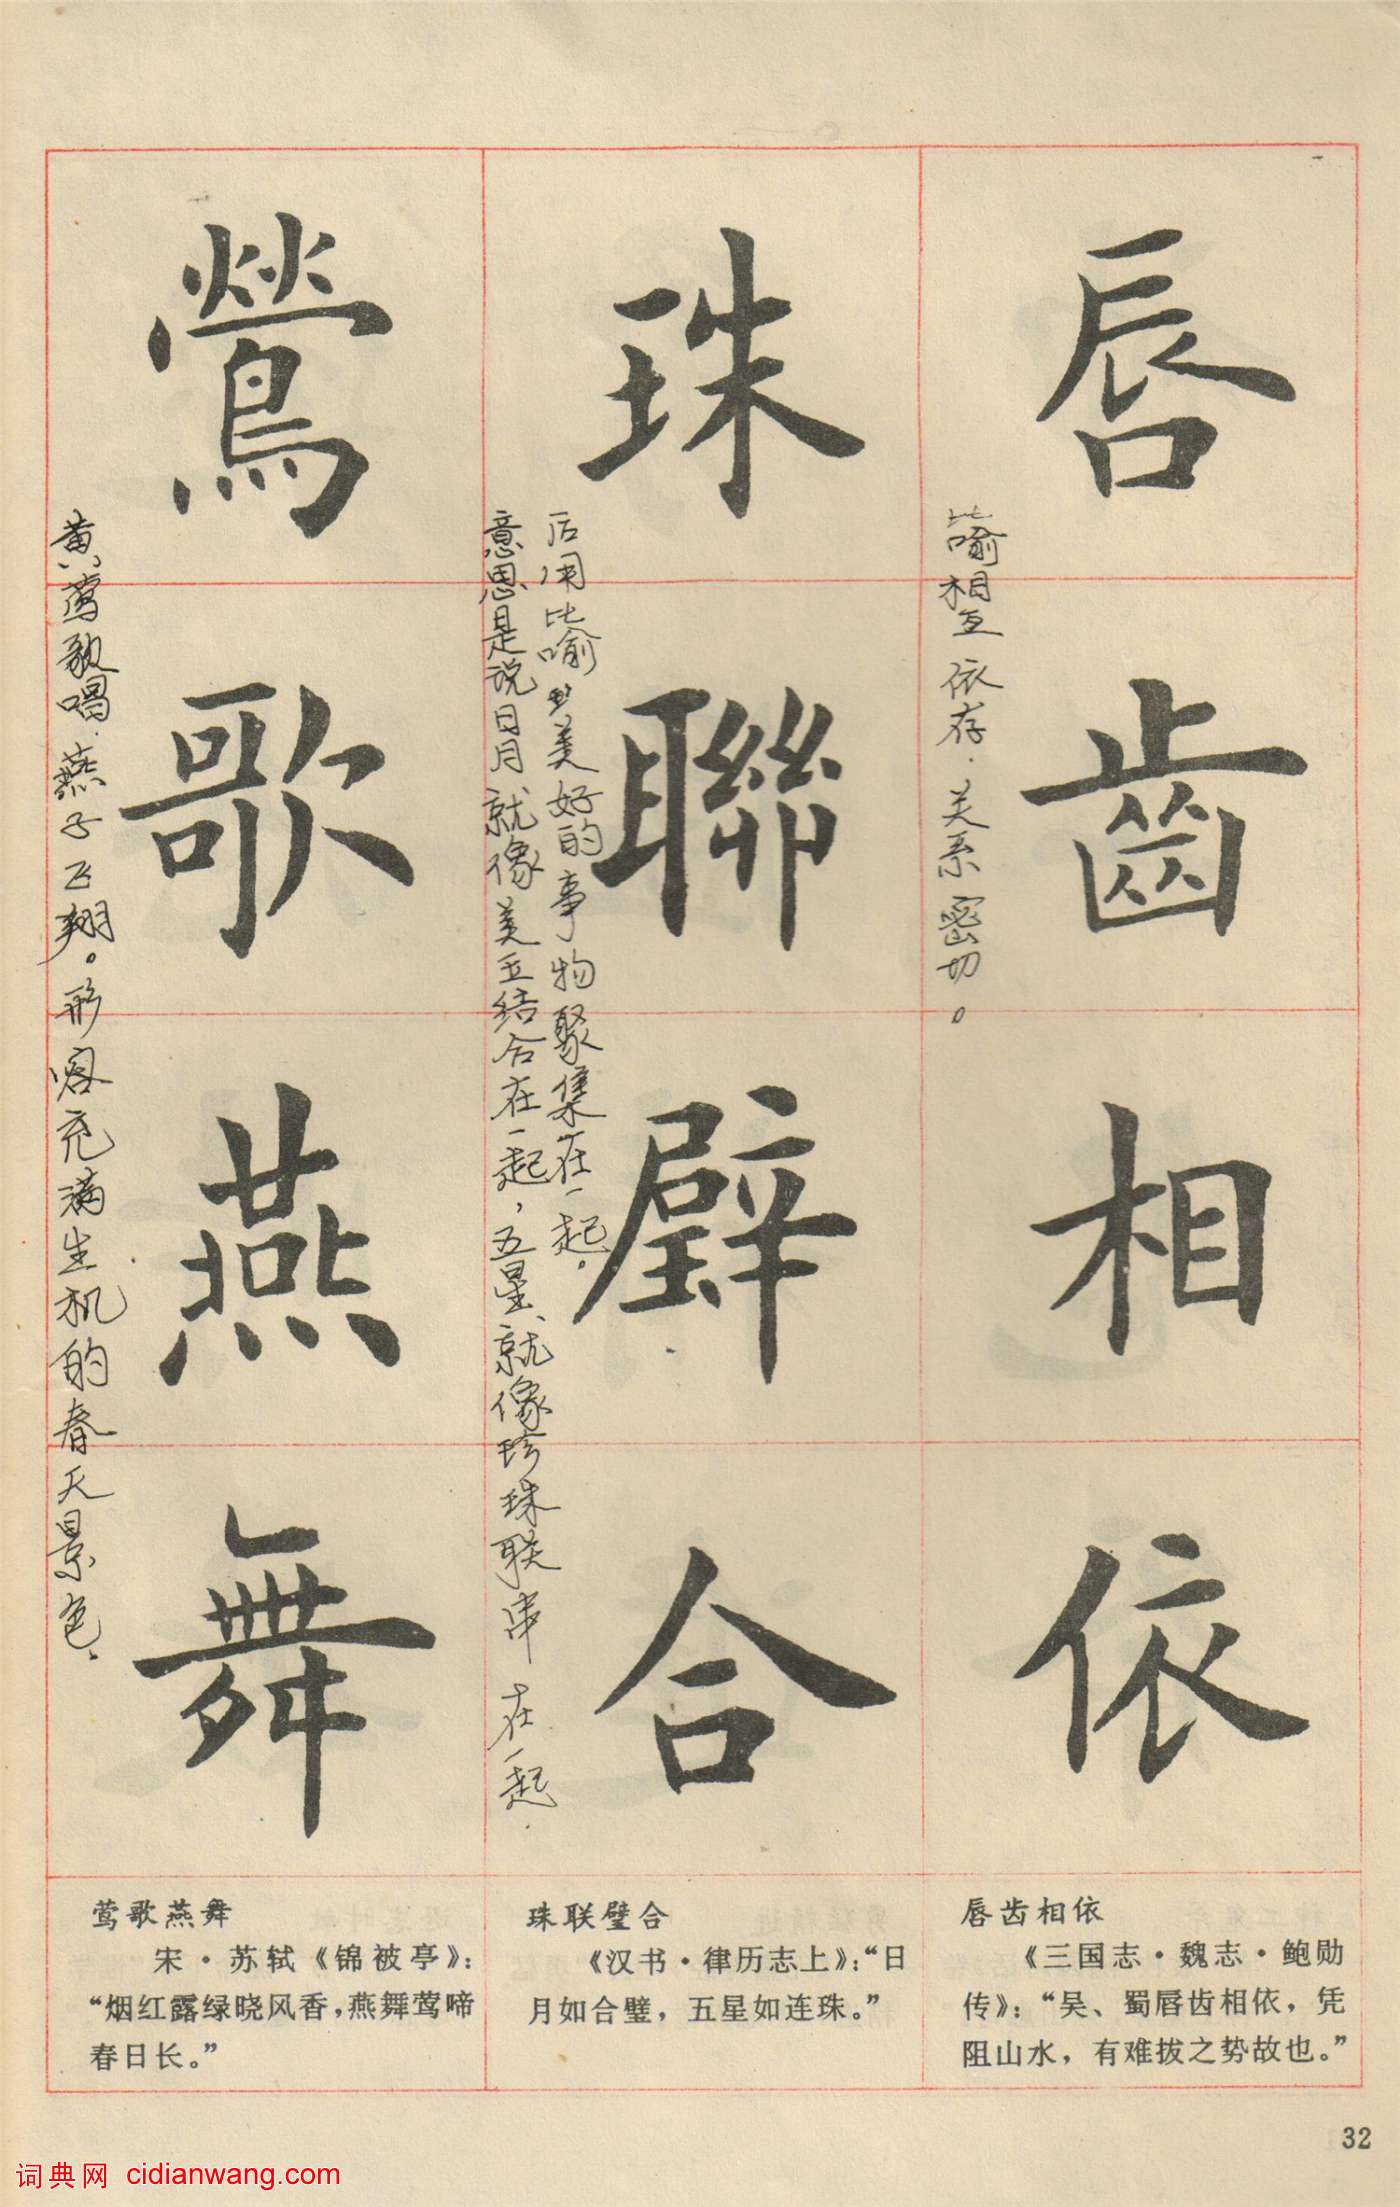 唇齒相依
比喻相互依存.关系密切。
珠聯璧合
后用比喻美好的事物聚集在一起.
意思是说日月就像美玉结合在一起,五星就像珍珠联串在一起.
鶯歌燕舞
黄莺歌唱.燕子飞翔。形容充满生机的春天景色.
唇齿相依
《三国志·魏志·鲍勋
传》:“吴、蜀唇齿相依,凭
阻山水,有难拔之势故也。”
珠联璧合
《汉书·律历志上》:“日
月如合璧,五星如连珠。”
莺歌燕舞
宋·苏轼《锦被亭》:
“烟红露绿晓风香,燕舞莺啼
春日长。”
32
词典网 cidianwang.com